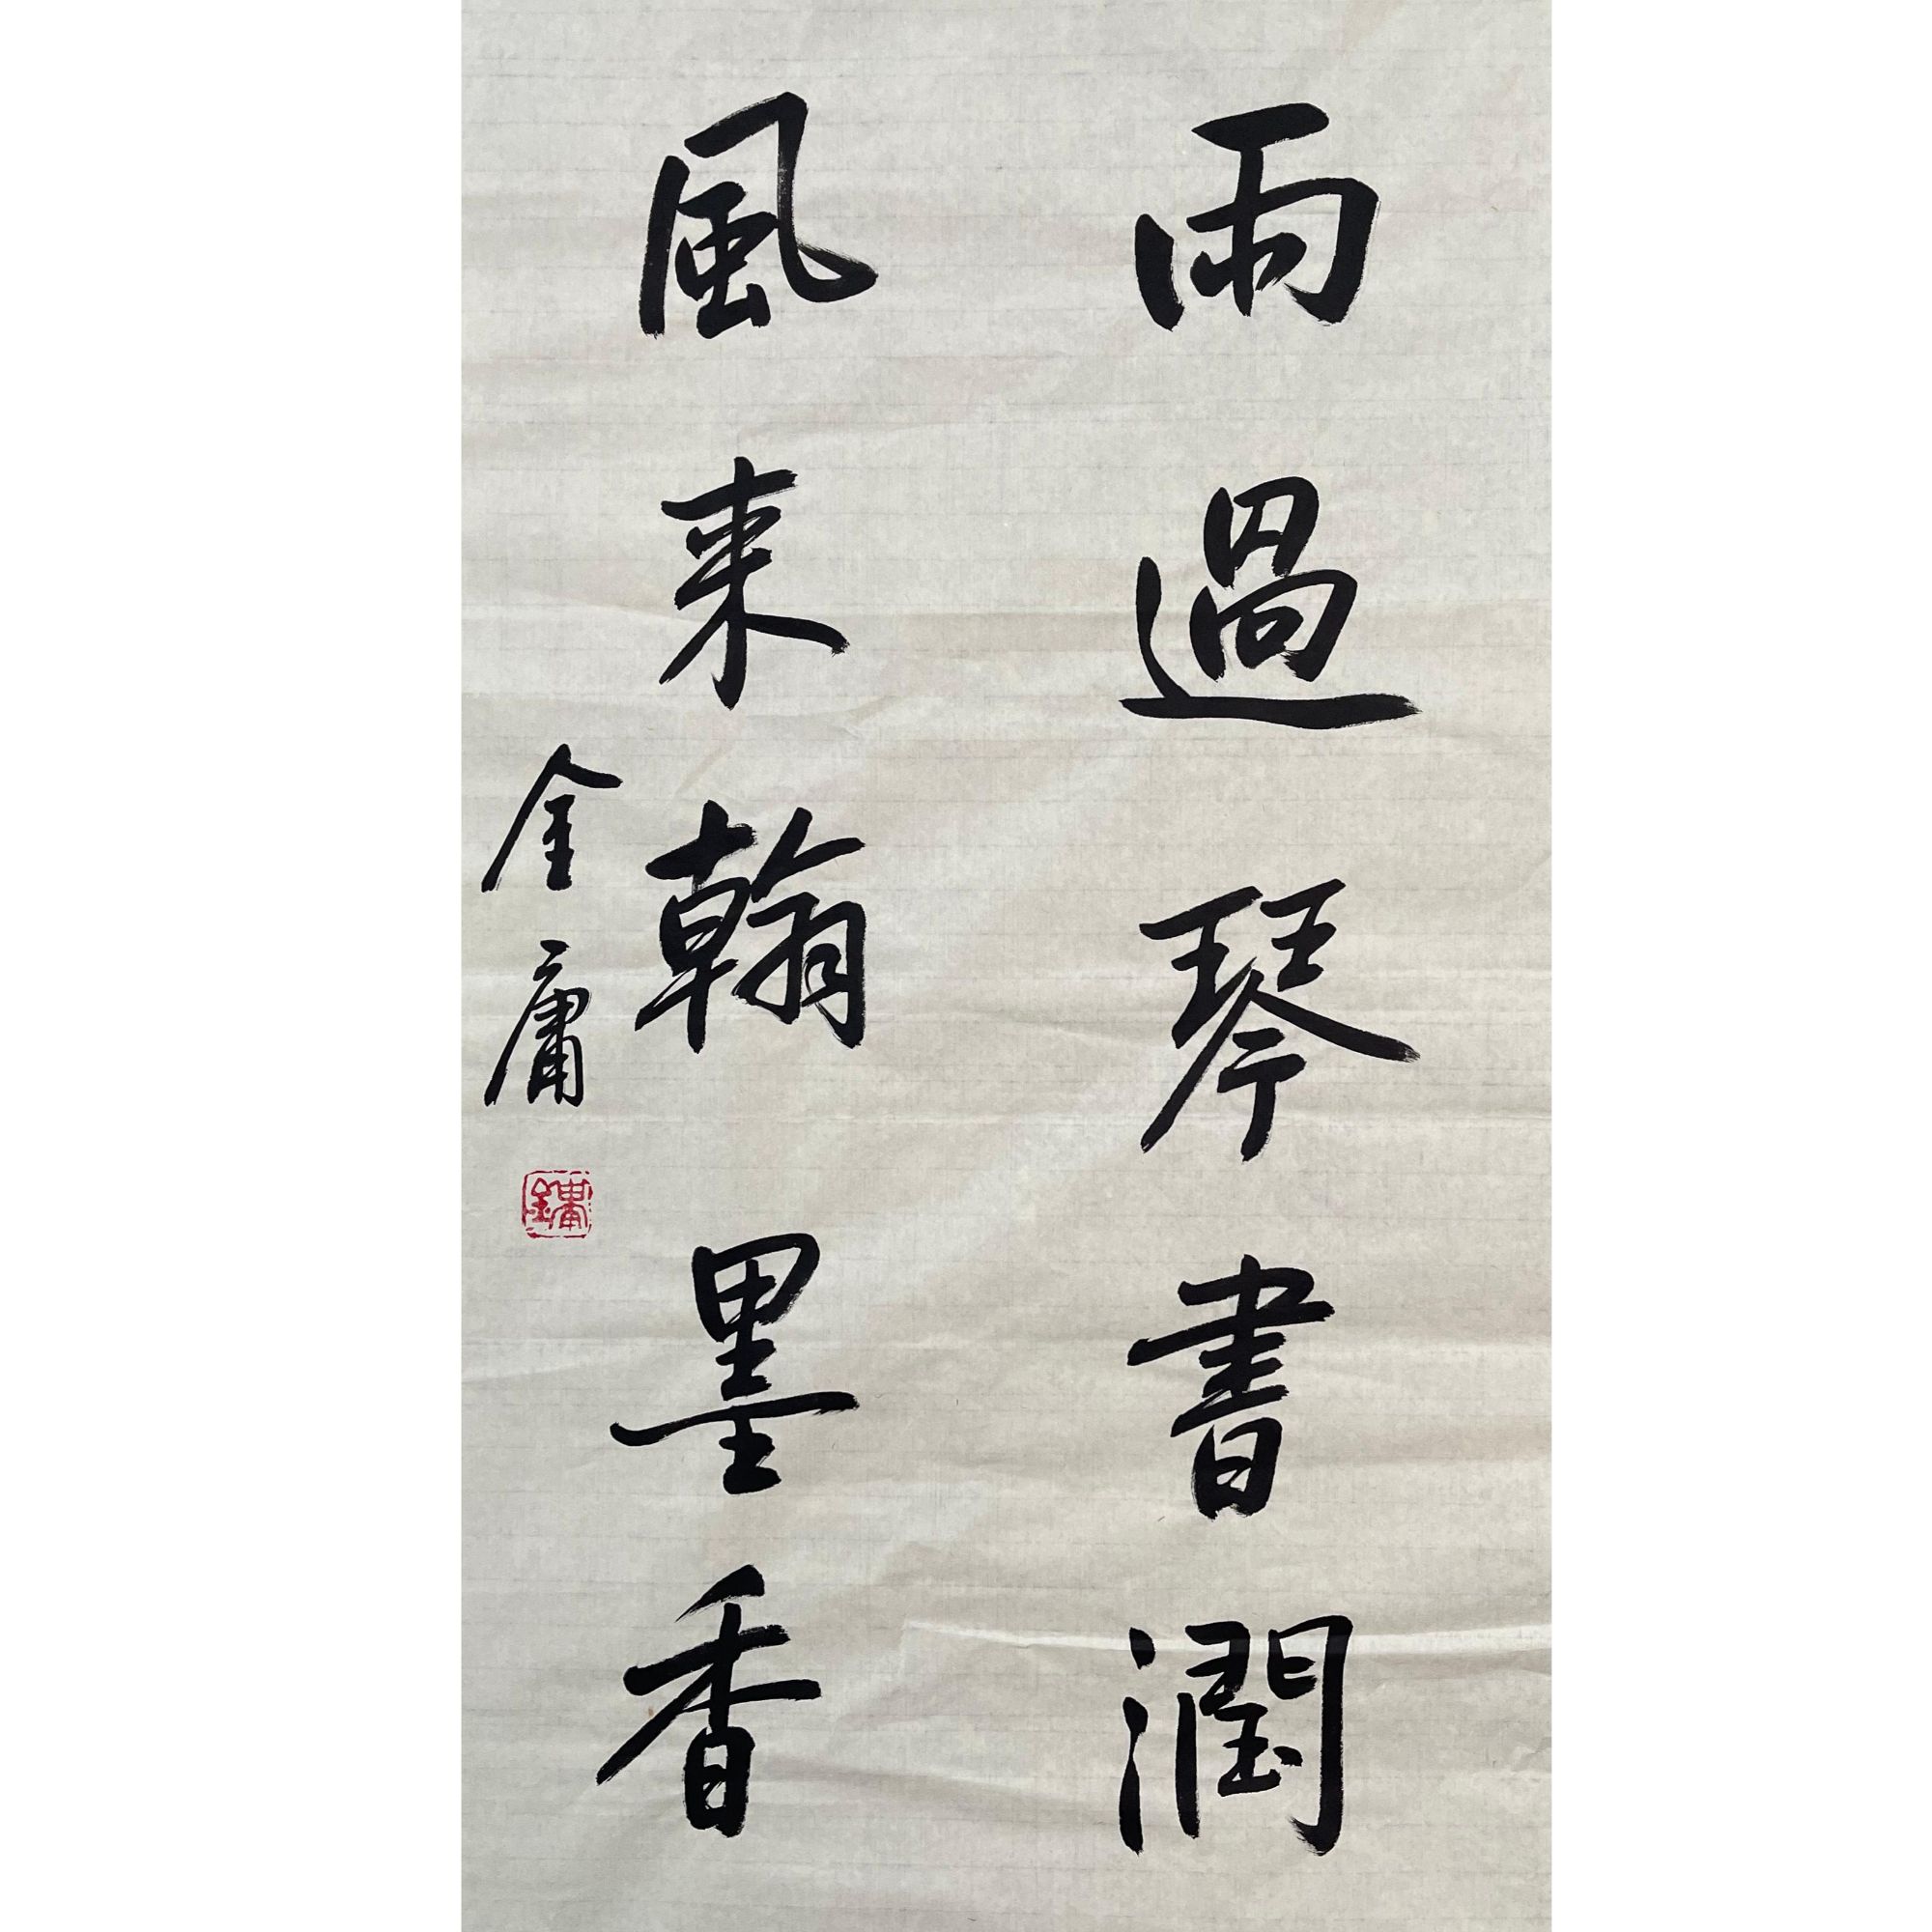 雨過琴書潤
風来翰墨香
金庸
鏞